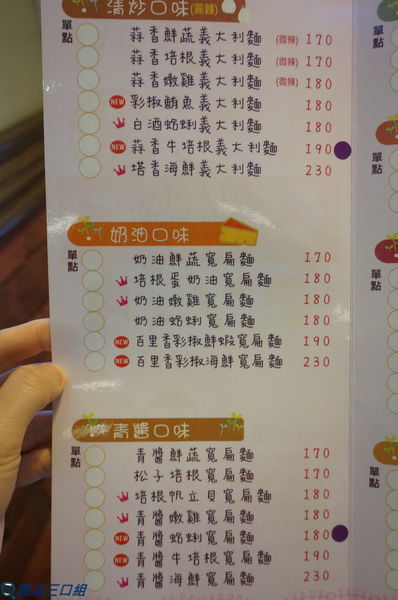 清炒口味(圓麵)
單點
蒜香鮮蔬義大利麵 (微辣) 170
蒜香培根義大利麵 (微辣) 170
蒜香嫩雞義大利麵 (微辣) 180
NEW 彩椒鮪魚義大利麵 180
白酒蛤蜊義大利麵 180
NEW 蒜香牛培根義大利麵 190
塔香海鮮義大利麵 230
奶油口味
單點
奶油鮮蔬寬扁麵 170
培根蛋奶油寬扁麵 180
奶油嫩雞寬扁麵 180
奶油蛤蜊寬扁麵 180
NEW 百里香彩椒鮮蝦寬扁麵 190
NEW 百里香彩椒海鮮寬扁麵 230
青醬口味
單點
青醬鮮蔬寬扁麵 170
松子培根寬扁麵 170
培根帆立貝寬扁麵 180
青醬嫩雞寬扁麵 180
青醬蛤蜊寬扁麵 180
NEW 青醬牛培根寬扁麵 190
青醬海鮮寬扁麵 230
單點
單點
單點
三口組